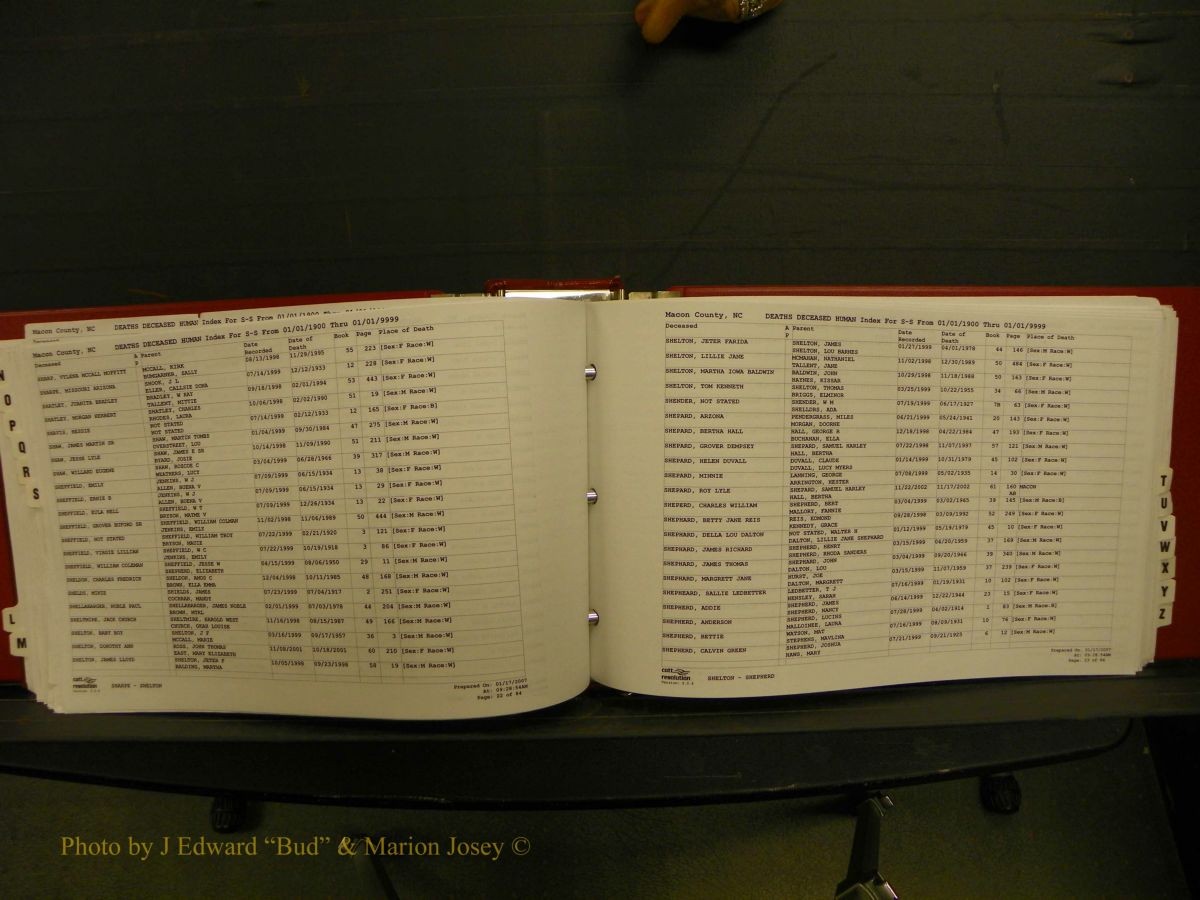 Macon County, NC DEATHS DECEASED HUMAN Index For S-S From 01/01/1900 Thru 01/01/9999
Macon County, NC DEATHS DECEASED HUMAN Index For S-S From 01/01/1900 Thru 01/01/9999
Deceased A Parent Date Recorded Date of Death Book Page Place of Death
SHARP, VYLENA MCCALL MOFFITT MCCALL, KIRK 08/13/1998 11/29/1995 55 223 [Sex:F Race:W]
BUMGARNER, SALLY
SHARPE, MISSOURI ARIZONA SHOOK, J L 07/14/1999 12/12/1933 12 228 [Sex:F Race:W]
ELLER, CALLSIE DORA
SHATLEY, JUANITA BRADLEY BRADLEY, W RAY 09/18/1998 02/01/1994 53 443 [Sex:F Race:W]
TALLENT, MITTIE
SHATLEY, MORGAN HERBERT SHATLEY, CHARLES 10/06/1998 02/02/1990 51 19 [Sex:M Race:W]
RHODES, LAURA
SHAVIS, BESSIE NOT STATED 07/14/1999 02/12/1933 12 165 [Sex:F Race:B]
NOT STATED
SHAW, JAMES MARTIN SR SHAW, MARTIN TOMBS 01/04/1999 09/30/1984 47 275 [Sex:M Race:W]
OVERSTREET, LOU
SHAW, JESSE LYLE SHAW, JAMES E SR 10/14/1998 11/09/1990 51 211 [Sex:M Race:W]
BYARD, JOSIE
SHAW, WILLARD EUGENE SHAW, ROSCOE C 03/04/1999 06/28/1966 39 317 [Sex:M Race:W]
WEATHERS, LUCY
SHEFFIELD, EMILY JENKINS, W J 07/09/1999 06/15/1934 13 38 [Sex:F Race:W]
ALLEN, BUENA V
SHEFFIELD, ERNIE B JENKINS, W J 07/09/1999 06/15/1934 13 29 [Sex:F Race:W]
ALLEN, BUENA V
SHEFFIELD, EULA NELL SHEFFIELD, W T 07/09/1999 12/26/1934 13 22 [Sex:F Race:W]
BRYSON, MAYME V
SHEFFIELD, GROVER BUFORD SR SHEFFIELD, WILLIAM COLMAN 11/02/1998 11/06/1989 50 444 [Sex:M Race:W]
JENKINS, EMILY
SHEFFIELD, NOT STATED SHEFFIELD, WILLIAM TROY 07/22/1999 02/21/1920 3 121 [Sex:F Race:W]
BRYSON, MACIE
SHEFFIELD, VIRGIE LILLIAN SHEFFIELD, W C 07/22/1999 10/19/1918 3 86 [Sex:F Race:W]
JENKINS, EMILY
SHEFFIELD, WILLIAM COLEMAN SHEFFIELD, JESSE W 04/15/1999 08/06/1950 29 11 [Sex:M Race:W]
SHEPHERD, ELIZABETH
SHELDON, CHARLES FREDRICK SHELDON, AMOS C 12/04/1998 10/11/1985 48 168 [Sex:M Race:W]
BROWN, ELLA EMMA
SHELDS, MINIE SHIELDS, JAMES 07/23/1999 07/04/1917 2 251 [Sex:F Race:W]
COCHRAN, MANDY
SHELLABARGER, NOBLE PAUL SHELLABARGER, JAMES NOBLE 02/01/1999 07/03/1978 44 204 [Sex:M Race:W]
BROWN, MYRL
SHELTMIRE, JACK CHURCH SHELTMIRE, HAROLD WEST 11/16/1998 08/15/1987 49 166 [Sex:M Race:W]
CHURCH, ORAH LOUISE
SHELTON, BABY BOY SHELTON, J F 03/16/1999 09/17/1957 36 3 [Sex:M Race:W]
MCCALL, MARIE
SHELTON, DOROTHY ANN ROSS, JOHN THOMAS 11/08/2001 10/18/2001 60 210 [Sex:F Race:W]
EAST, MARY ELIZABETH
SHELTON, JAMES LLOYD SHELTON, JETER F 10/05/1998 09/23/1998 58 19 [Sex:M Race:W]
BALDING, MARTHA
cott resolution
SHARPE - SHELTON
Prepared On: 01/17/2007
At: 09:28:54AM
Page: 22 of 84
N
O
P
Q
R
S
L
M
Macon County, NC DEATHS DECEASED HUMAN Index For S-S From 01/01/1900 Thru 01/01/9999
Deceased A Parent Date Recorded Date of Death Book Page Place of Death
SHELTON, JETER FARIDA SHELTON, JAMES 01/27/1999 04/01/1978 44 146 [Sex:M Race:W]
SHELTON, LOU BARNES
SHELTON, LILLIE JANE MCMAHAN, NATHANIEL 11/02/1998 12/30/1989 50 484 [Sex:F Race:W]
TALLENT, JANE
SHELTON, MARTHA IOWA BALDWIN BALDWIN, JOHN 10/29/1998 11/18/1988 50 143 [Sex:F Race:W]
HAYNES, KISSAR
SHELTON, TOM KENNETH SHELTON, THOMAS 03/25/1999 10/22/1955 34 66 [Sex:M Race:W]
BRIGGS, ELMINOR
SHENDER, NOT STATED SHENDER, W M 07/19/1999 06/17/1927 7B 63 [Sex:F Race:W]
SHELLORS, ADA
SHEPARD, ARZONA PENDERGRASS, MILES 06/21/1999 05/24/1941 20 143 [Sex:F Race:W]
MORGAN, DOORNE
SHEPARD, BERTHA HALL HALL, GEORGE R 12/18/1998 04/22/1984 47 193 [Sex:F Race:W]
BUCHANAN, ELLA
SHEPARD, GROVER DEMPSEY SHEPARD, SAMUEL HARLEY 07/22/1998 11/07/1997 57 121 [Sex:M Race:W]
HALL, BERTHA
SHEPARD, HELEN DUVALL DUVALL, CLAUDE 01/14/1999 10/31/1979 45 102 [Sex:F Race:W]
DUVALL, LUCY MYERS
SHEPARD, MINNIE LANNING, GEORGE 07/08/1999 05/02/1935 14 30 [Sex:F Race:W]
ARRINGTON, HESTER
SHEPARD, ROY LYLE SHEPARD, SAMUEL HARLEY 11/22/2002 11/17/2002 61 160 MACON
HALL, BERTHA
SHEPERD, CHARLES WILLIAM SHEPHERD, BERT 03/04/1999 03/02/1965 39 145 [Sex:M Race:B]
MALLORY, FANNIE
SHEPHARD, BETTY JANE REIS REIS, EDMOND 09/28/1998 03/09/1992 52 249 [Sex:F Race:W]
KENNEDY, GRACE
SHEPHARD, DELLA LOU DALTON NOT STATED, WALTER H 01/12/1999 05/19/1979 45 10 [Sex:F Race:W]
DALTON, LILLIE JANE SHEPHARD
SHEPHARD, JAMES RICHARD SHEPHERD, HENRY 03/15/1999 04/20/1959 37 169 [Sex:M Race:W]
SHEPHERD, RHODA SANDERS
SHEPHARD, JAMES THOMAS SHEPHARD, JOHN 03/04/1999 09/20/1966 39 340 [Sex:M Race:W]
DALTON, LOU
SHEPHARD, MARGRETT JANE HURST, JOE 03/15/1999 11/07/1959 37 239 [Sex:F Race:W]
DALTON, MARGRETT
SHEPHEARD, SALLIE LEDBETTER LEDBETTER, T J 07/16/1999 01/19/1931 10 102 [Sex:F Race:W]
HENSLEY, SARAH
SHEPHERD, ADDIE SHEPHERD, JAMES 06/14/1999 12/22/1944 23 15 [Sex:F Race:W]
SHEPHERD, NANCY
SHEPHERD, ANDERSON SHEPHERD, LUCINS 07/28/1999 04/02/1914 1 83 [Sex:M Race:B]
MALLOINEE, LAURA
SHEPHERD, BETTIE WATSON, MAT 07/16/1999 08/09/1931 10 76 [Sex:F Race:W]
STEPHENS, MAVLINA
SHEPHERD, CALVIN GREEN SHEPHERD, JOSHUA 07/21/1999 09/21/1925 6 12 [Sex:M Race:W]
HAWS, MARY
cott resolution
SHELTON - SHEPHERD
Prepared On: 01/17/2007
At: 09:28:54AM
Page: 23 of 84
T
U
V
W
X
Y
Z
Photo by J Edward “Bud” & Marion Josey ©